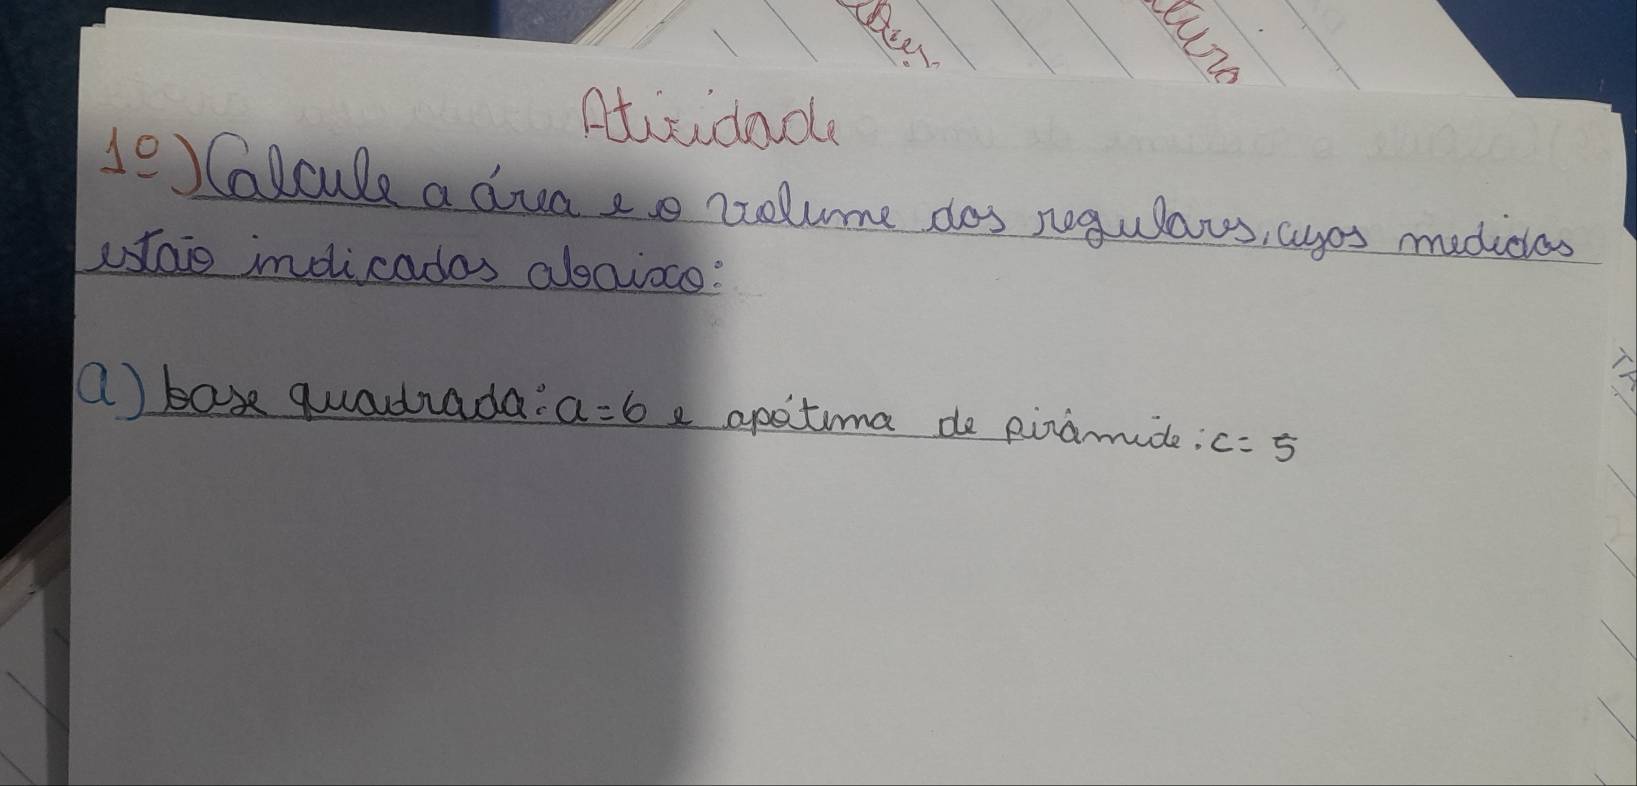 Atividade
1º) Calcule a área e o volume dos regulares, cujos medidas
estão indicados abaixo:
a) base quadrada: a = 6 e apótema de pirâmide: c = 5